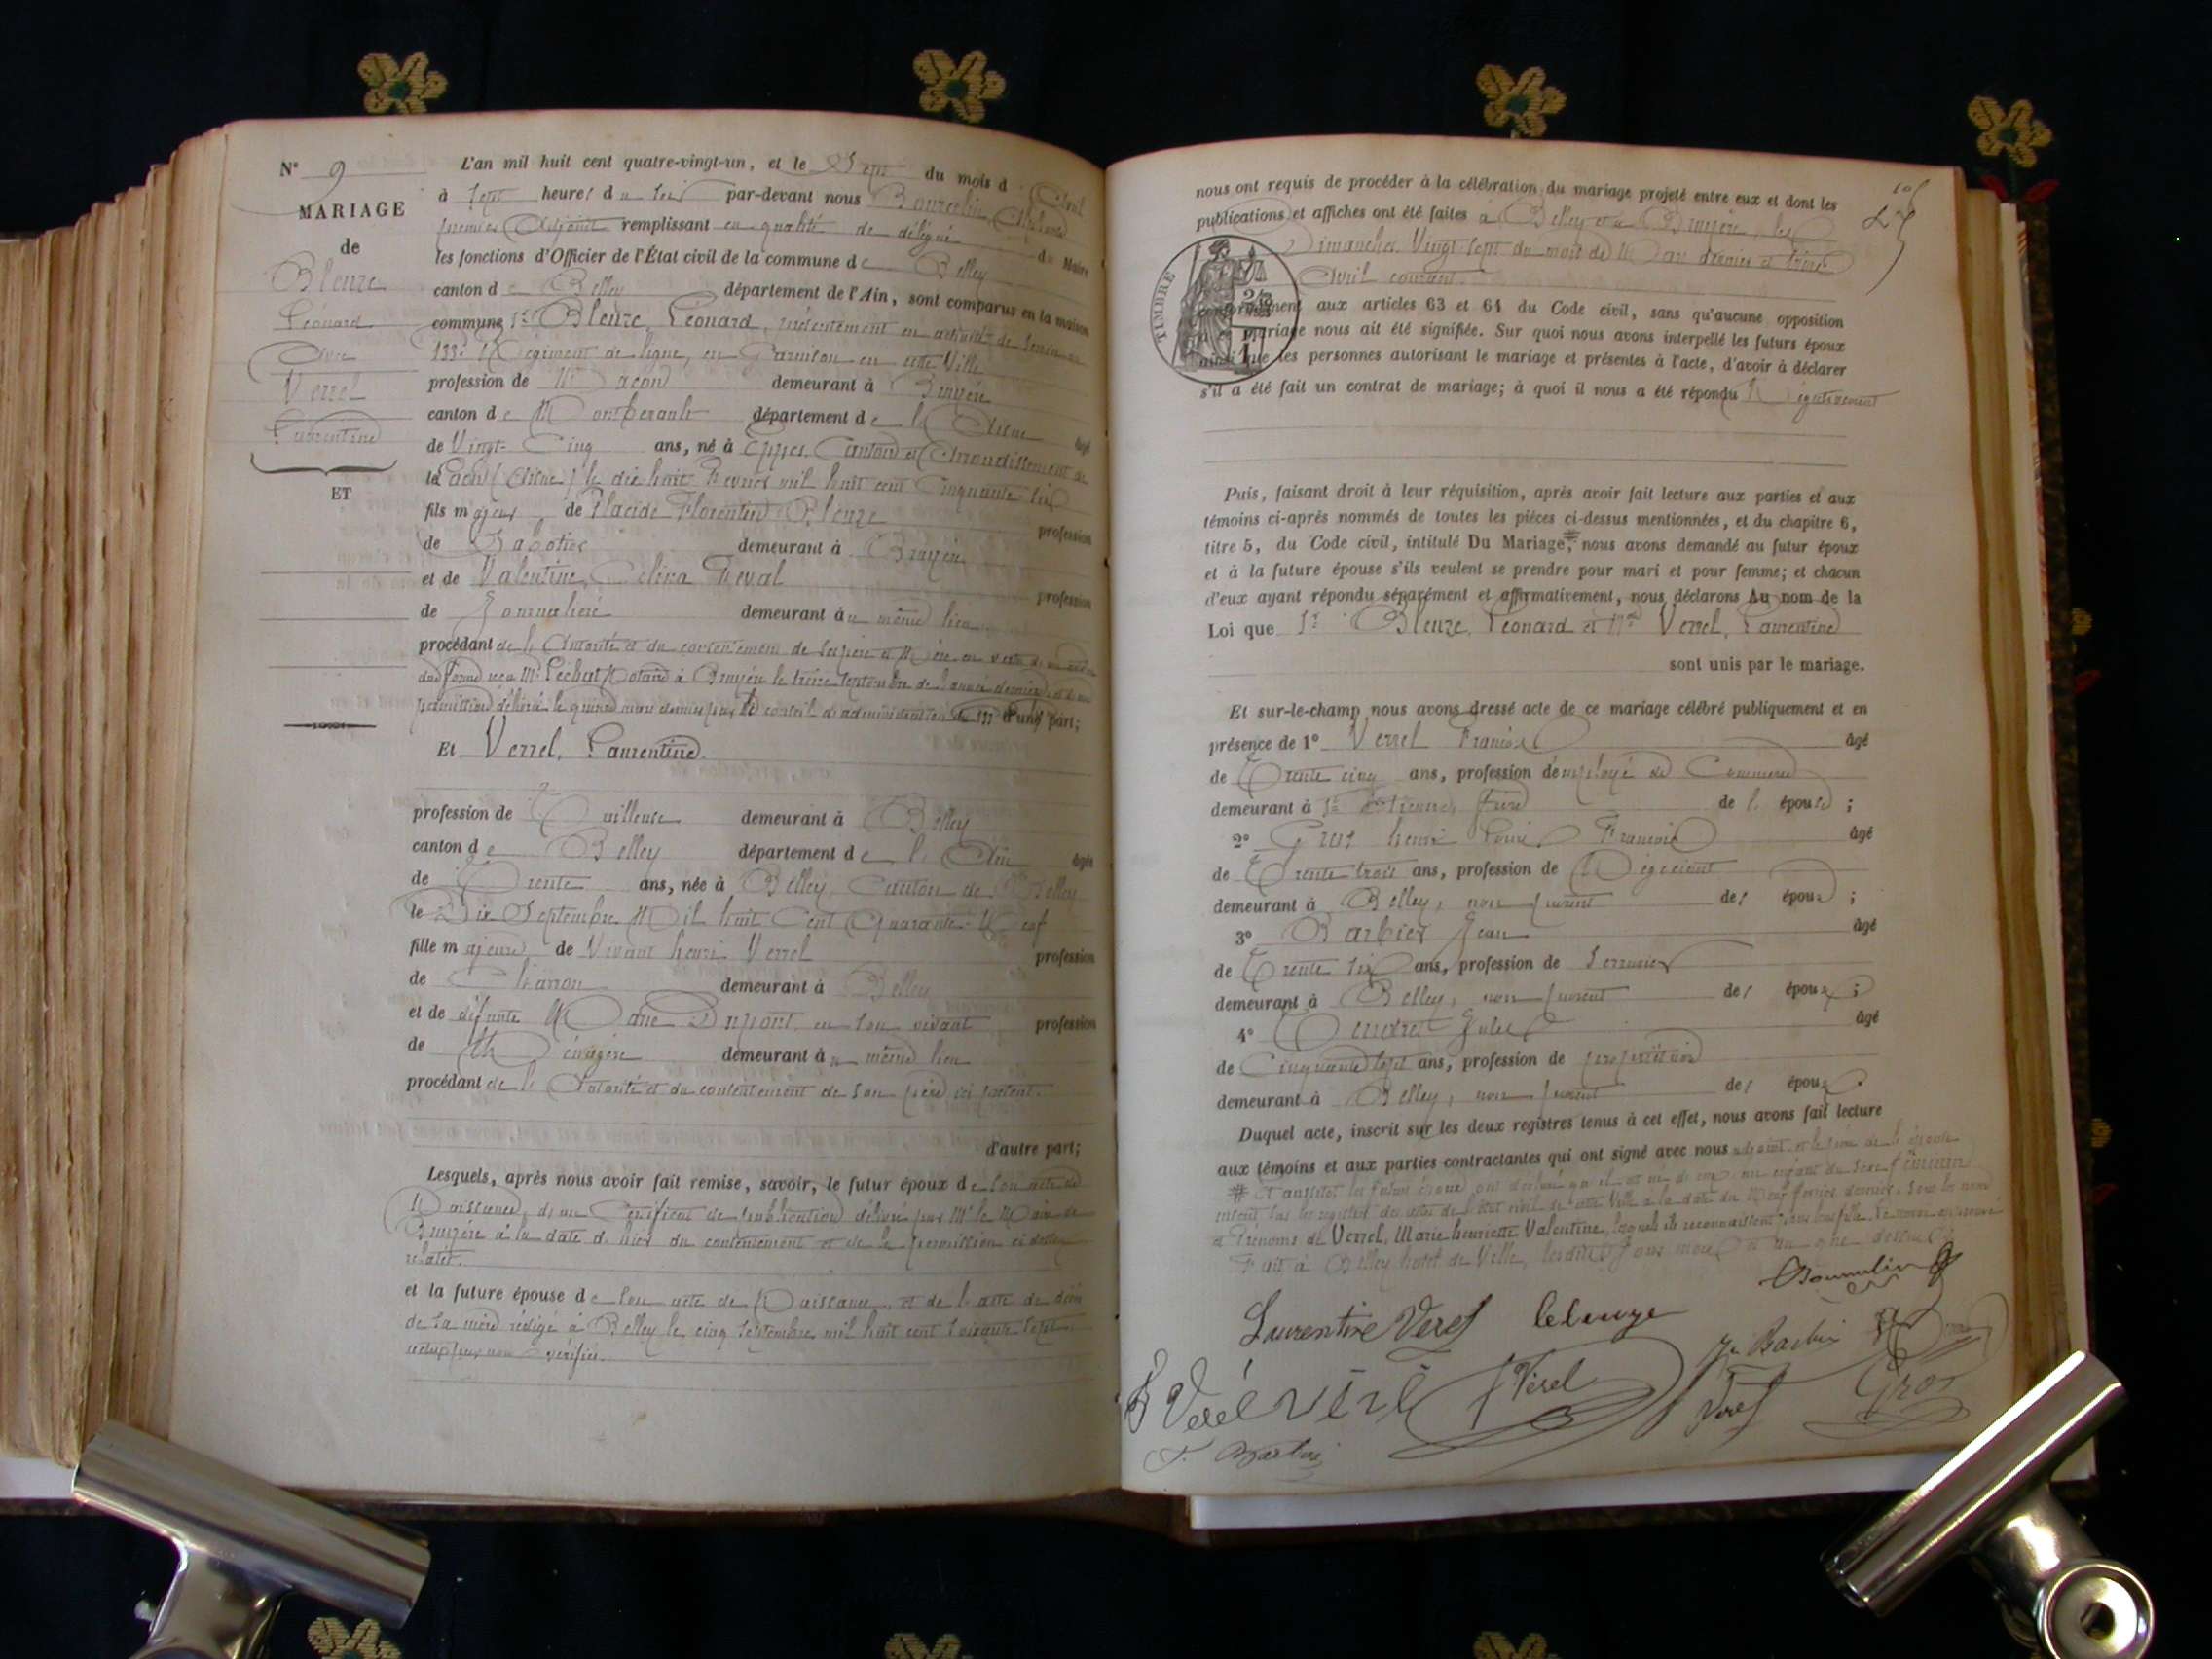 N° 9
MARIAGE
de
Bleuze
Léonard
Avec
Verrel
Laurentine
ET
L'an mil huit cent quatre-vingt-un, et le Sept du mois d'Avril
à sept heures du soir par-devant nous
premier Adjoint remplissant en qualité de délégué du Maire
les fonctions d'Officier de l'État civil de la commune de Belley
canton de Belley département de l'Ain, sont comparus en la maison
commune Sr Bleuze, Léonard, présentement en activité de service au
133e Régiment de ligne, en Garnison en cette Ville
profession de Maçon demeurant à
canton de département de l'Aisne âgé
de Vingt-Cinq ans, né à Eppes, Canton et Arrondissement de
Laon (Aisne) le dix huit Fevrier mil huit cent Cinquante six
fils majeur de Placide Florentin Bleuze profession
de Sabotier demeurant à
et de Valentine, Céléna Feval profession
de Journalière demeurant au même lieu
procédant de l'Autorité et du consentement de ses père et Mère en vertu d'un
reçu Me Péchart Notaire à le treize septembre de l'année dernière et d'une
permission délivrée le quinze mars dernier par le conseil d'administration du 133e d'une part;
Et Verrel, Laurentine.
profession de Tailleuse demeurant à Belley
canton de Belley département de l'Ain âgée
de Trente ans, née à Belley, Canton de Belley
le Dix Septembre Mil huit Cent Quarante-Neuf
fille majeure de Vivant henri Verrel profession
de Charron demeurant à Belley
et de défunte Marie Dupont, en son vivant profession
de Ménagère demeurant au même lieu
procédant de l'Autorité et du consentement de son père ici présent.
d'autre part;
Lesquels, après nous avoir fait remise, savoir, le futur époux de son acte de
Naissance, d'un Certificat de publication délivré par Mr le Maire de
à la date d'hier du consentement et de la permission ci dessus
relatés.
et la future épouse de son acte de Naissance, et de l'acte de décès
de sa mère rédigé à Belley le cinq Septembre mil huit cent soixante sept
par nous vérifiés.
nous ont requis de procéder à la célébration du mariage projeté entre eux et dont les
publications et affiches ont été faites à Belley et à les
Dimanches Vingt-sept du mois de Mars dernier et trois
Avril courant
TIMBRE
conformément aux articles 63 et 64 du Code civil, sans qu'aucune opposition
à ce mariage nous ait été signifiée. Sur quoi nous avons interpellé les futurs époux
ainsi que les personnes autorisant le mariage et présentes à l'acte, d'avoir à déclarer
s'il a été fait un contrat de mariage; à quoi il nous a été répondu Négativement
Puis, faisant droit à leur réquisition, après avoir fait lecture aux parties et aux
témoins ci-après nommés de toutes les pièces ci-dessus mentionnées, et du chapitre 6,
titre 5, du Code civil, intitulé Du Mariage, # nous avons demandé au futur époux
et à la future épouse s'ils veulent se prendre pour mari et pour femme; et chacun
d'eux ayant répondu séparément et affirmativement, nous déclarons Au nom de la
Loi que Sr Bleuze, Léonard et Verrel, Laurentine
sont unis par le mariage.
Et sur-le-champ nous avons dressé acte de ce mariage célébré publiquement et en
présence de 1° Verrel François âgé
de Trente cinq ans, profession d'employé de Commerce
demeurant à St Etienne, frère de l'épouse;
2° Gros henri Louis François âgé
de Trente trois ans, profession de Négociant
demeurant à Belley, non parent des époux;
3° Barbier Jean âgé
de Trente six ans, profession de Serrurier
demeurant à Belley, non parent des époux;
4° Jules âgé
de Cinquante sept ans, profession de propriétaire
demeurant à Belley, non parent des époux.
Duquel acte, inscrit sur les deux registres tenus à cet effet, nous avons fait lecture
aux témoins et aux parties contractantes qui ont signé avec nous adjoint et le père de l'épouse
# Et aussitôt les futurs époux ont déclaré qu'il est né d'eux un enfant du sexe féminin
inscrit sur les registres des actes de l'état civil de cette Ville à la date du Neuf février dernier, sous les noms
et Prénoms de Verrel, Marie henriette Valentine, laquelle ils reconnaissent pour leur fille.
Fait à Belley hotel de Ville, lesdits jour mois et an que dessus
Laurentine Verel
Verel
F Verel
Jn Barbier
Verel
Gros